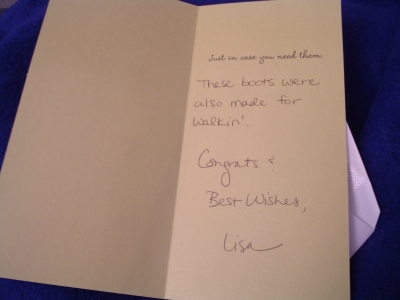 Just in case you need them.
These boots were
also made for
walkin'.
Congrats &
Best Wishes,
Lisa